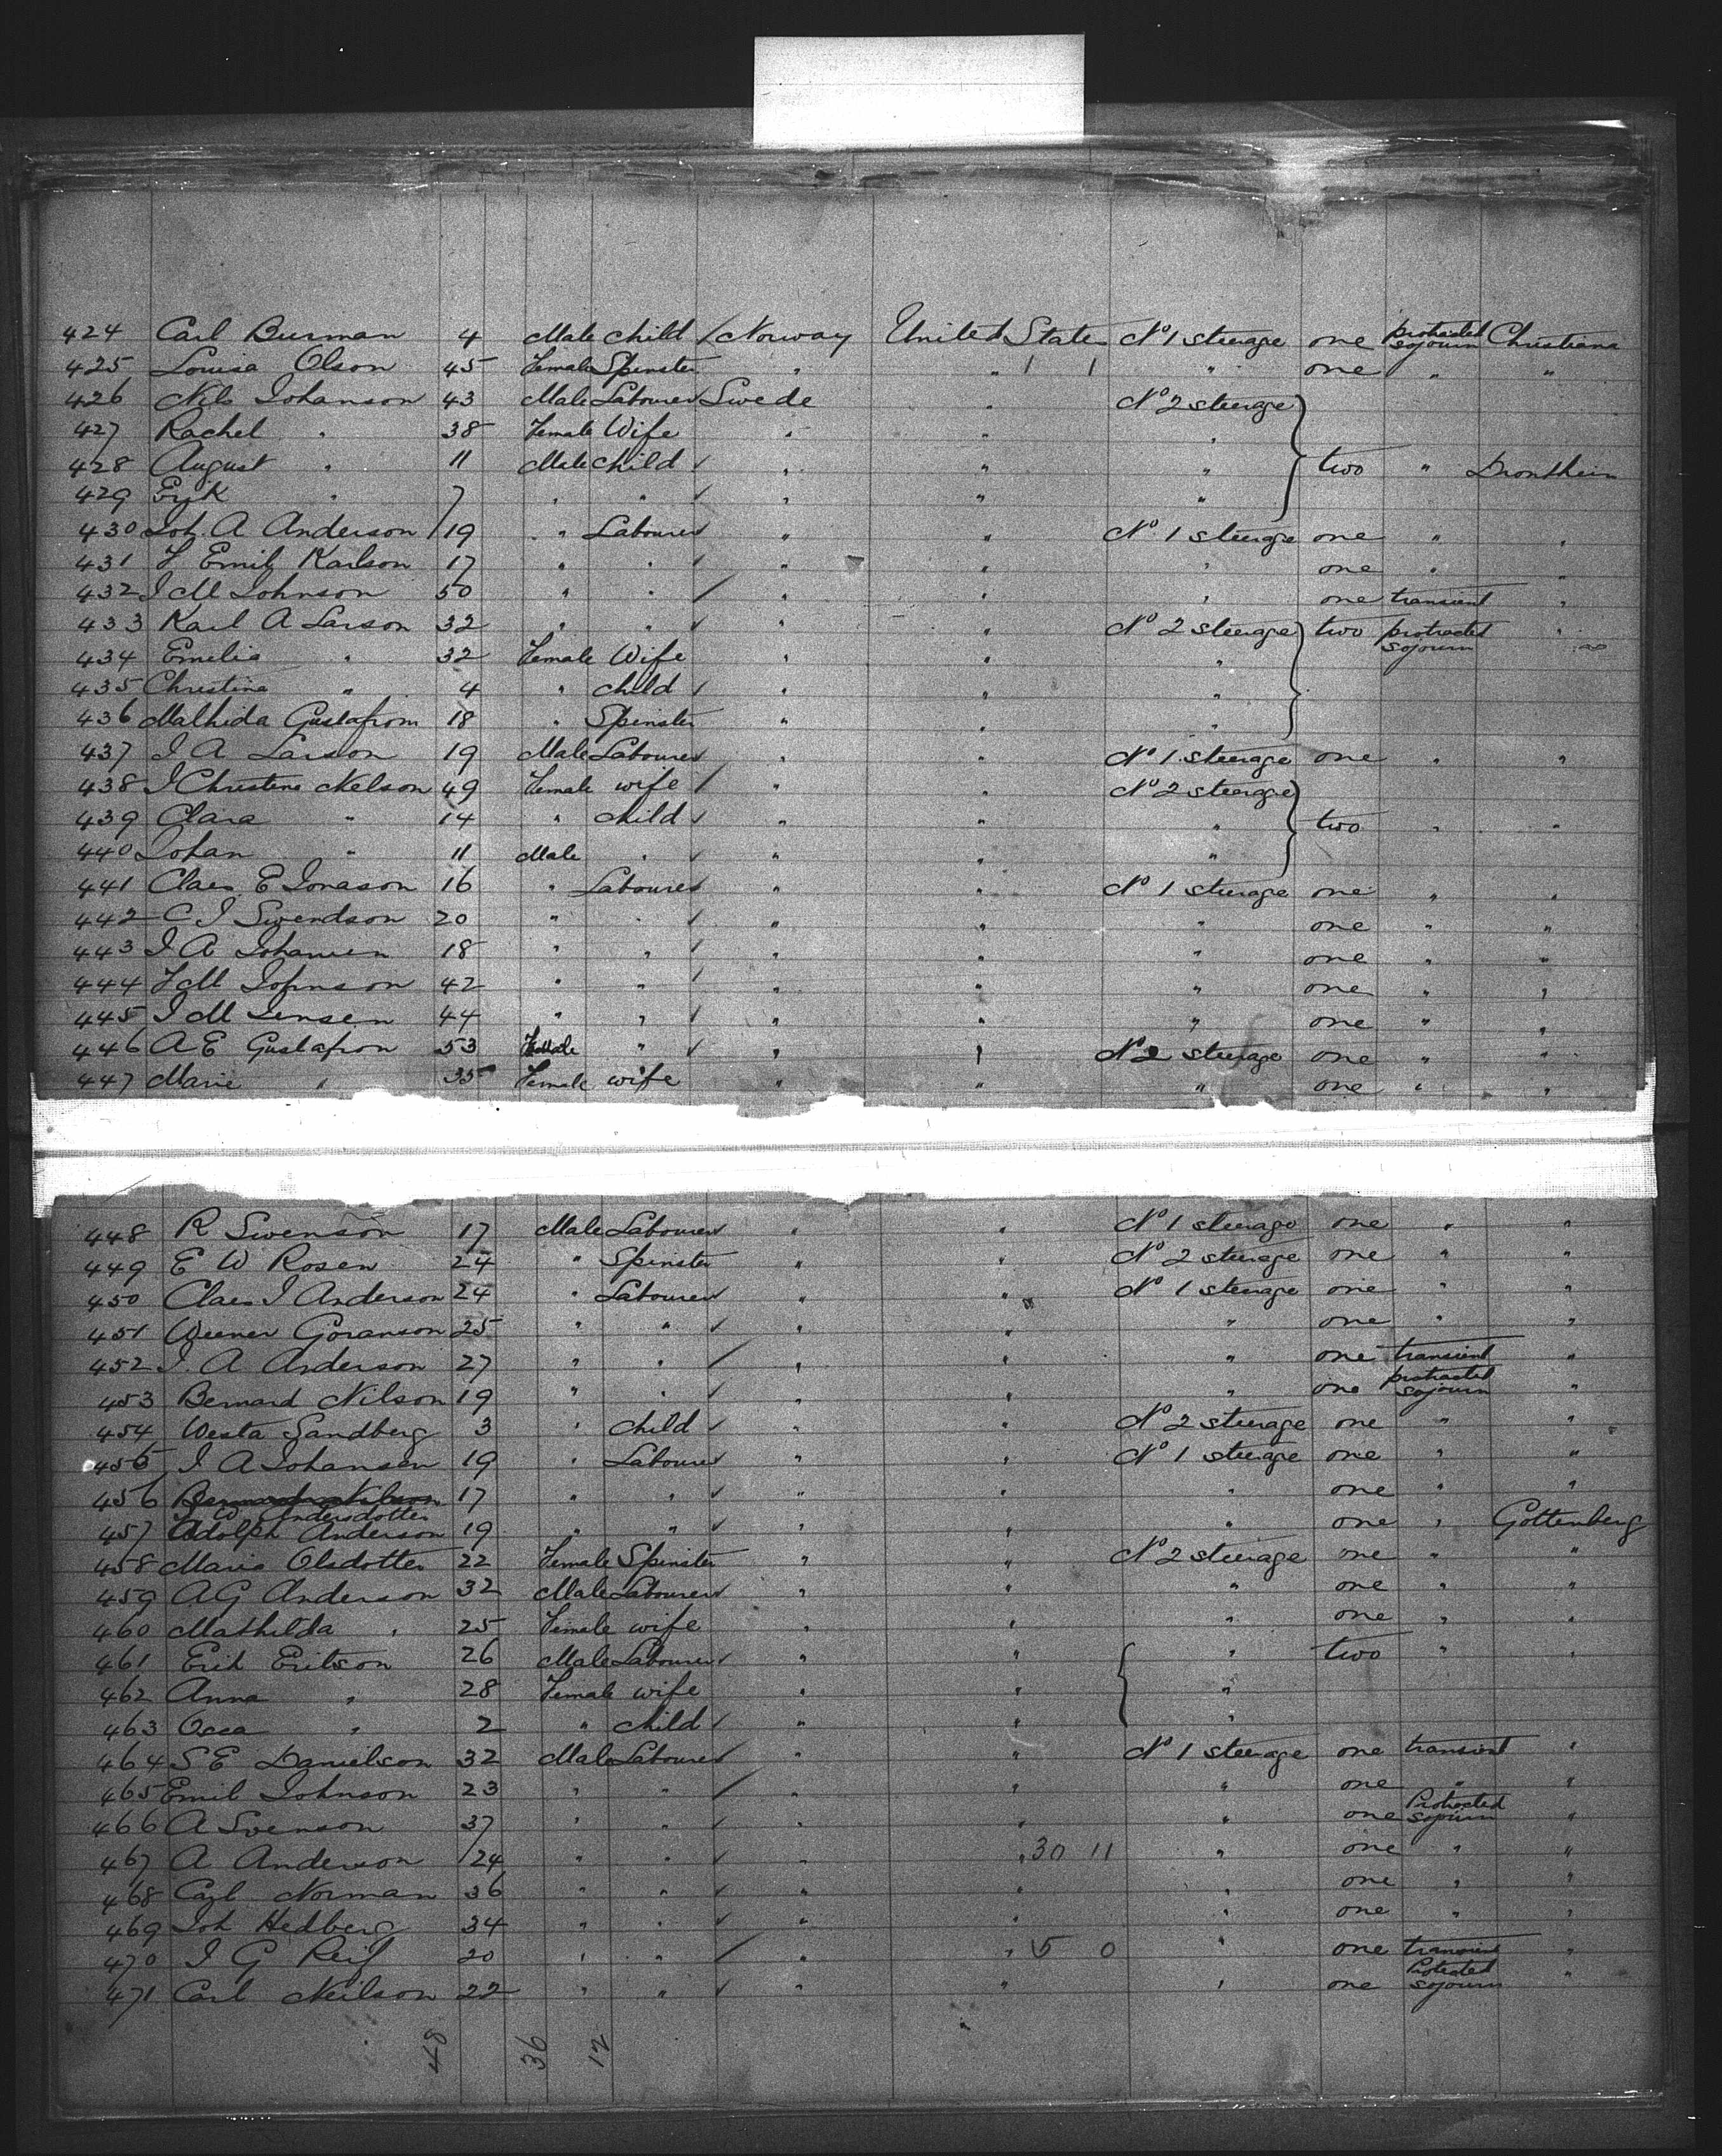 424 Carl Burman 4 Male child / Norway United States No 1 steerage one protracted sojourn Christiana
425 Louisa Olson 45 Female Spinster " " 1 1 " one " "
426 Nils Johanson 43 Male Labourer Swede " No 2 steerage
427 Rachel " 38 Female Wife " " "
428 August " 11 Male child ✓ " " " two " Drontheim
429 Erik " 7 " " ✓ " " "
430 Joh. A Anderson 19 " Labourer " " No 1 steerage one " "
431 F Emil Karlson 17 " " ✓ " " " one " "
432 J M Johnson 50 " " / " " " one transient "
433 Karl A Larson 32 " " ✓ " " No 2 steerage two protracted sojourn "
434 Emelia " 32 Female Wife " " "
435 Christina " 4 " child ✓ " " "
436 Mathida Gustafson 18 " Spinster " " "
437 J A Larson 19 Male Labourer " " No 1 steerage one " "
438 J Christina Nelson 49 Female wife / " " No 2 steerage
439 Clara " 14 " child ✓ " " " two " "
440 Johan " 11 Male " ✓ " " "
441 Claes E Jonason 16 " Labourer " " No 1 steerage one " "
442 C J Swendson 20 " " ✓ " " " one " "
443 J A Johansen 18 " " ✓ " " " one " "
444 F M Johnson 42 " " ✓ " " " one " "
445 J M Jensen 44 " " ✓ " " " one " "
446 A E Gustafson 53 " ✓ " " No 2 steerage one " "
447 Marie " 35 Female wife " " " one " "
448 R Swenson 17 Male Labourer " " No 1 steerage one " "
449 E W Rosen 24 " Spinster " " No 2 steerage one " "
450 Claes J Anderson 24 " Labourer " " No 1 steerage one " "
451 Werner Goranson 25 " " ✓ " " " one " "
452 J. A Anderson 27 " " / " " " one transient "
453 Bernard Nilson 19 " " ✓ " " " one protracted sojourn "
454 Westa Sandberg 3 " child ✓ " " No 2 steerage one " "
455 J A Johansen 19 " Labourer " " No 1 steerage one " "
456 Bernard Nilson 17 " " ✓ " " " one " "
J W Andersdotter
457 Adolph Anderson 19 " " ✓ " " " one " Gottenberg
458 Maria Olsdotter 22 Female Spinster " " No 2 steerage one " "
459 A G Anderson 32 Male Labourer " " " one " "
460 Mathilda " 25 Female wife " " " one " "
461 Erik Erikson 26 Male Labourer " " " two " "
462 Anna " 28 Female wife " " "
463 Occa " 2 " child ✓ " " "
464 S E Danielson 32 Male Labourer " " No 1 steerage one transient "
465 Emil Johnson 23 " " / " " " one " "
466 A Svenson 37 " " ✓ " " " one Protracted sojourn "
467 A Anderson 24 " " ✓ " " 30 11 " one " "
468 Carl Norman 36 " " ✓ " " " one " "
469 Joh Hedberg 34 " " ✓ " " " one " "
470 J G Reif 20 " " / " " 5 0 " one transient "
471 Carl Neilson 22 " " ✓ " " " one Protracted sojourn "
48 36 12